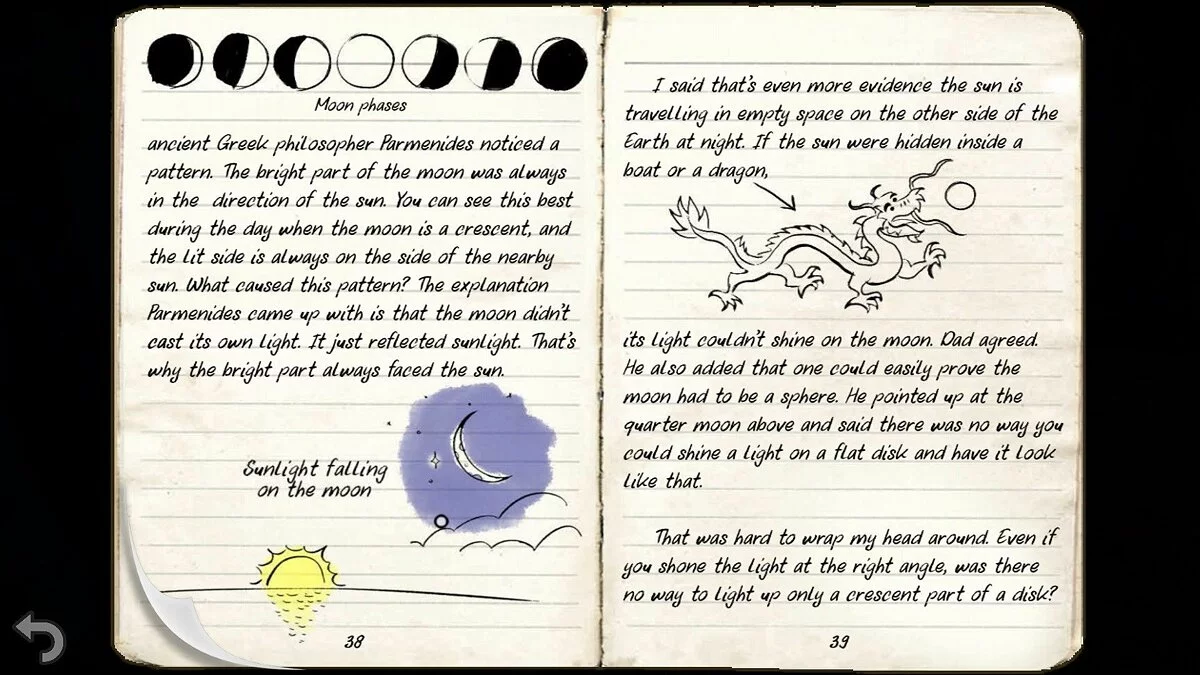 Moon phases
ancient Greek philosopher Parmenides noticed a
pattern. The bright part of the moon was always
in the direction of the sun. You can see this best
during the day when the moon is a crescent, and
the lit side is always on the side of the nearby
sun. What caused this pattern? The explanation
Parmenides came up with is that the moon didn't
cast its own light. It just reflected sunlight. That's
why the bright part always faced the sun.
Sunlight falling
on the moon
38
I said that's even more evidence the sun is
travelling in empty space on the other side of the
Earth at night. If the sun were hidden inside a
boat or a dragon,
its light couldn't shine on the moon. Dad agreed.
He also added that one could easily prove the
moon had to be a sphere. He pointed up at the
quarter moon above and said there was no way you
could shine a light on a flat disk and have it look
like that.
That was hard to wrap my head around. Even if
you shone the light at the right angle, was there
no way to light up only a crescent part of a disk?
39